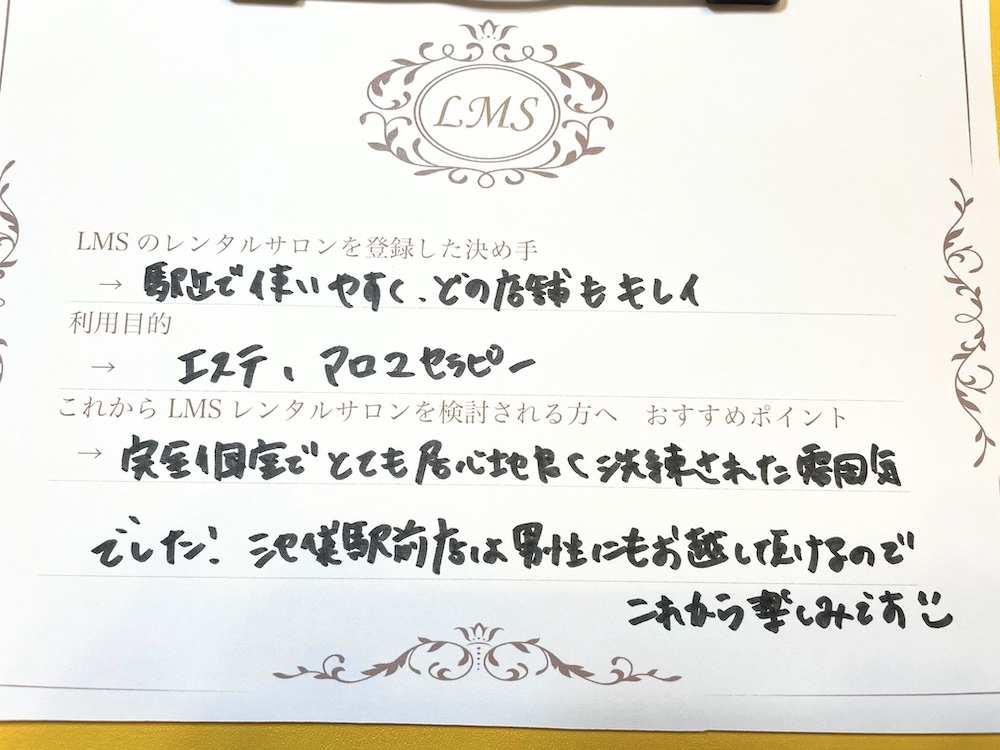 LMS
LMSのレンタルサロンを登録した決め手
→ 駅近で使いやすく、どの店舗もキレイ
利用目的
→ エステ、アロマセラピー
これからLMSレンタルサロンを検討される方へ　おすすめポイント
→ 完全個室でとても居心地良く洗練された雰囲気
でした! 池袋駅前店は男性にもお越し頂けるので
これから楽しみです